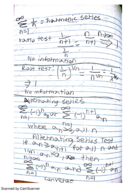 ∞
∑ 1/n → harmonic series
n=1
Ratio test 1/(n+1) / 1/n = n/(n+1) n→∞ → 1
No information
Root test (1/n)^(1/n) = 1/n^(1/n)
→ 1
No information
Alternating series
∑ (-1)^n a_n or ∑ (-1)^(n+1) a_n
where a_n ≥ 0 all n
Alternating Series Test
If a_n ≥ a_(n+1) for all n and
then
∑ (-1)^n a_n ∑ (-1)^(n+1) a_n
converge
Scanned by CamScanner